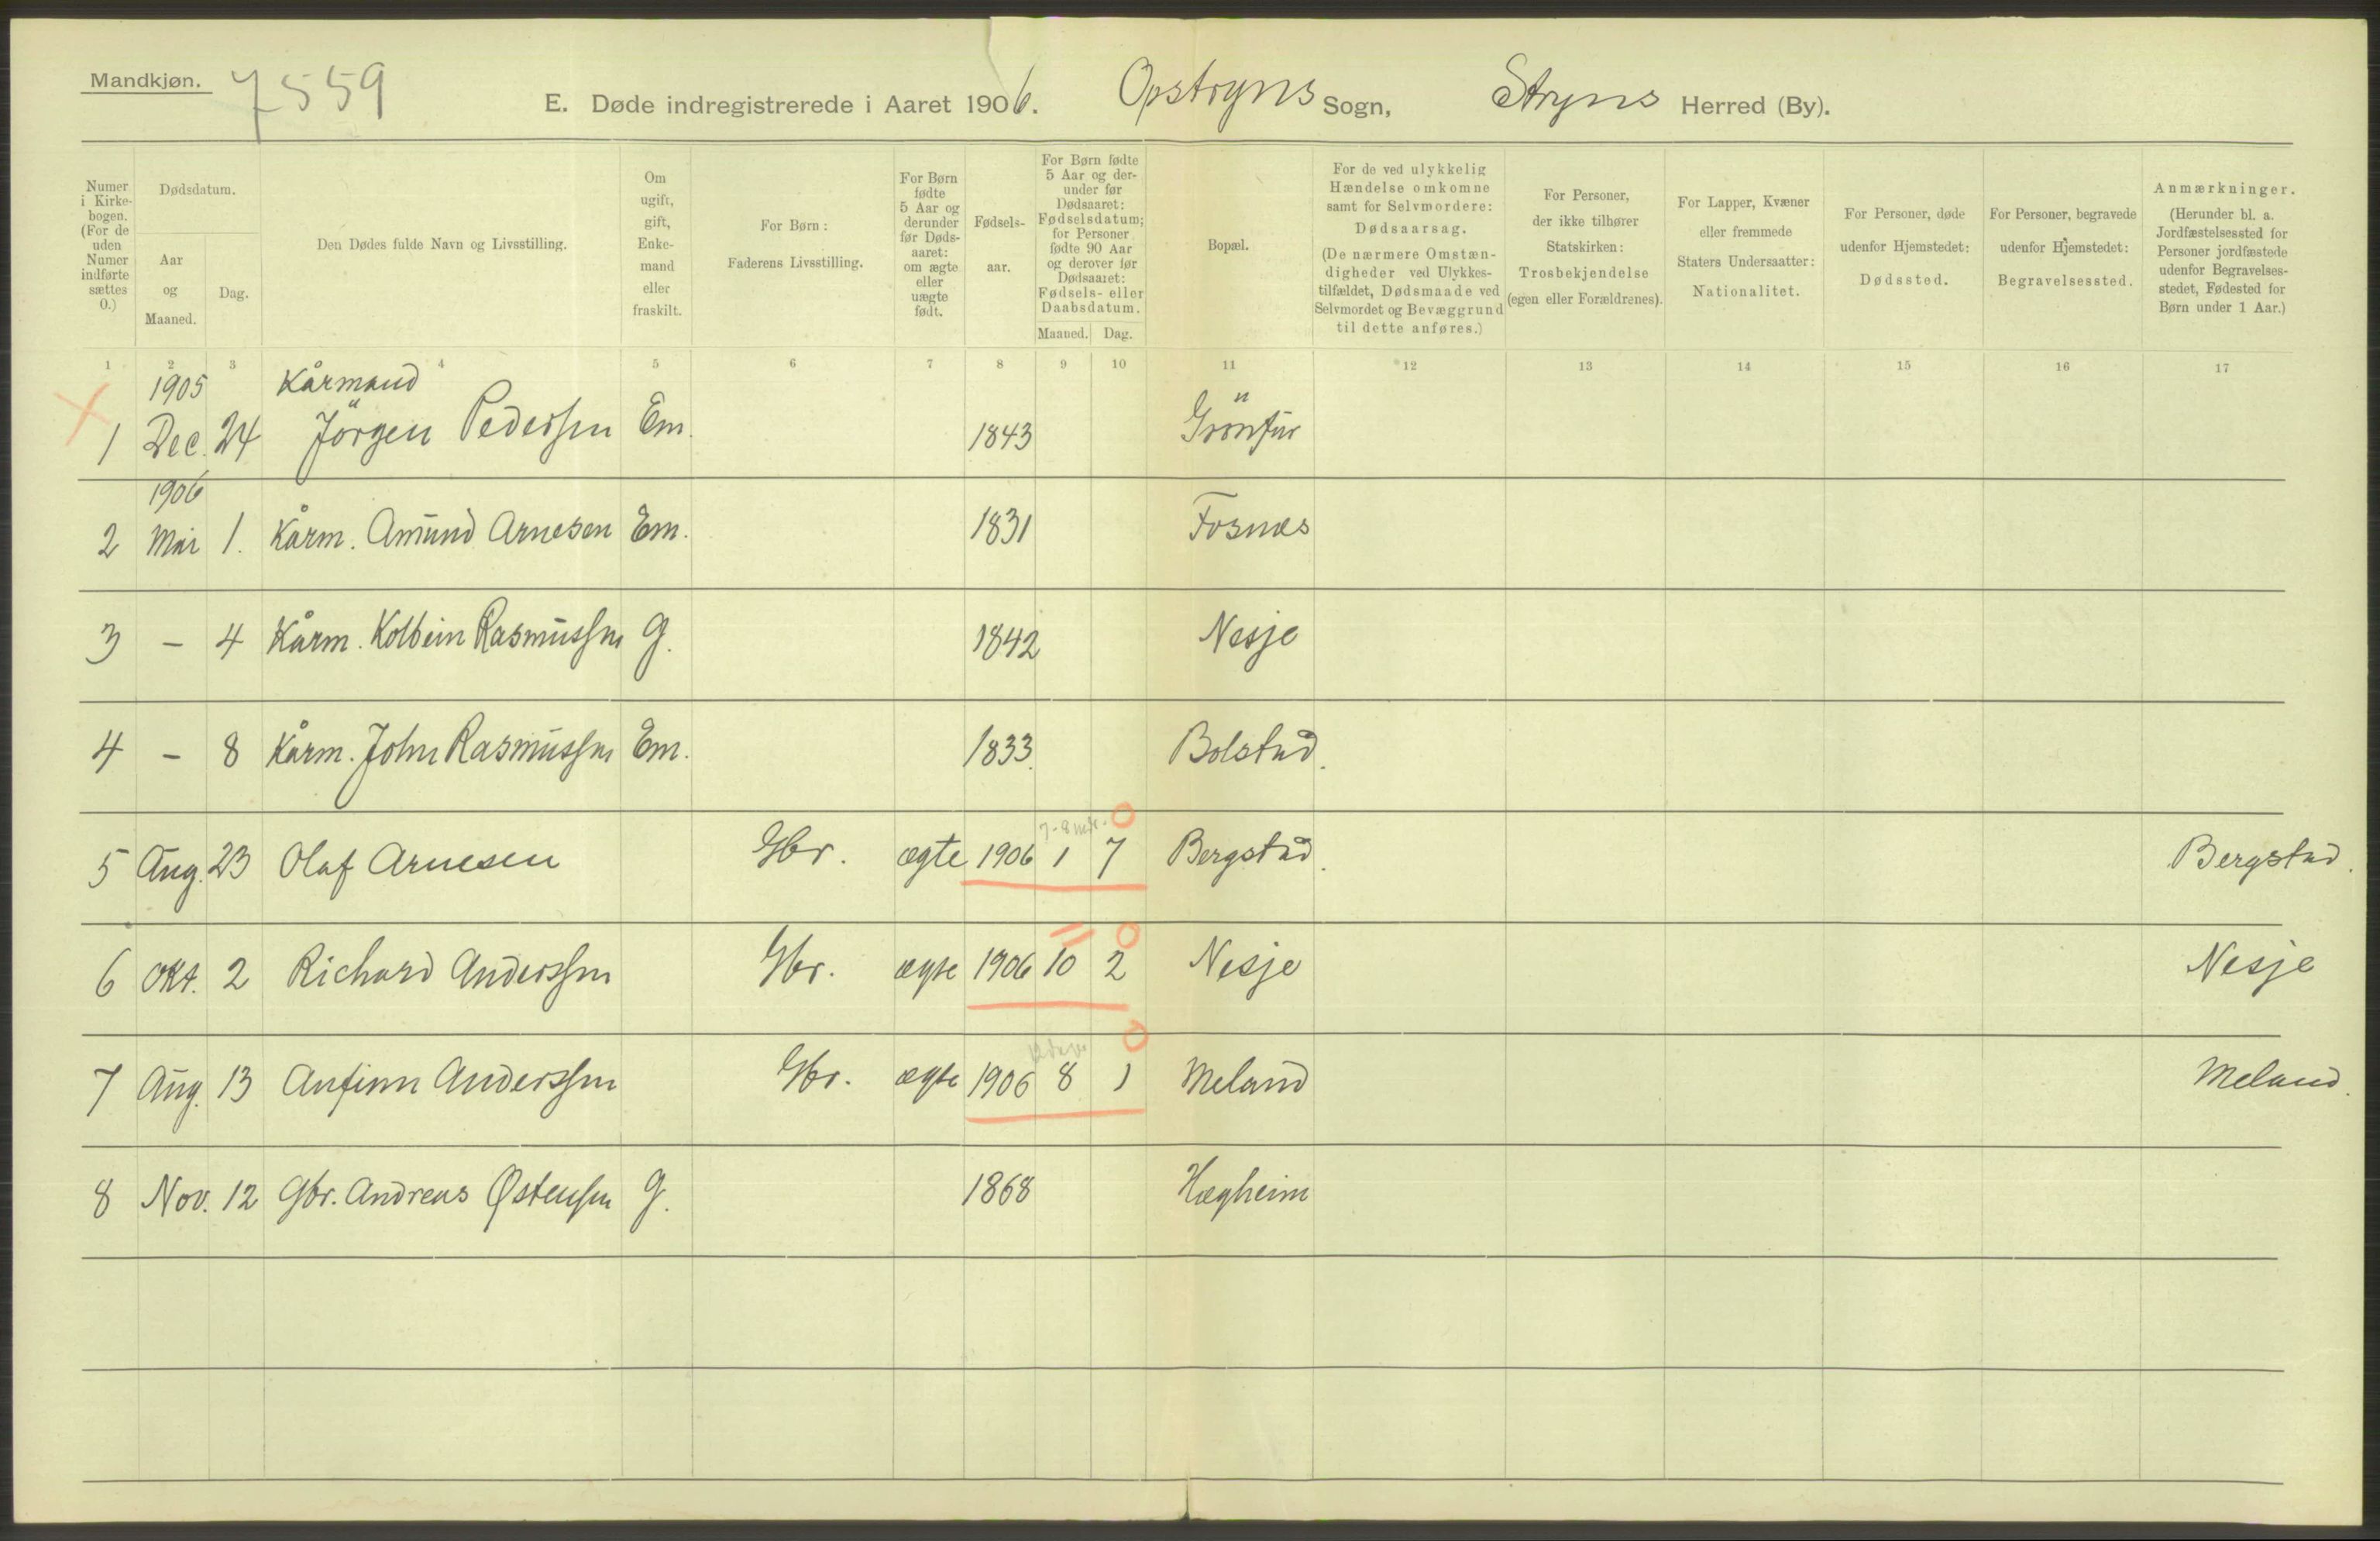 Mandkjøn. 7559
E. Døde indregistrerede i Aaret 1906. Opstryns Sogn, Stryns Herred (By).
Numer i Kirkebogen. (For de uden Numer indførte sættes 0.)
Dødsdatum.
Aar og Maaned.
Dag.
Den Dødes fulde Navn og Livsstilling.
Om ugift, gift, Enkemand eller fraskilt.
For Børn: Faderens Livsstilling.
For Børn fødte 5 Aar og derunder før Dødsaaret: om ægte eller uægte født.
Fødselsaar.
For Børn fødte 5 Aar og derunder før Dødsaaret: Fødselsdatum; for Personer fødte 90 Aar og derover før Dødsaaret: Fødsels- eller Daabsdatum.
Maaned. Dag.
Bopæl.
For de ved ulykkelig Hændelse omkomne samt for Selvmordere: Dødsaarsag. (De nærmere Omstændigheder ved Ulykkestilfældet, Dødsmaade ved Selvmordet og Bevæggrund til dette anføres.)
For Personer, der ikke tilhører Statskirken: Trosbekjendelse (egen eller Forældrenes).
For Lapper, Kvæner eller fremmede Staters Undersaatter: Nationalitet.
For Personer, døde udenfor Hjemstedet: Dødssted.
For Personer, begravede udenfor Hjemstedet: Begravelsessted.
Anmærkninger. (Herunder bl. a. Jordfæstelsessted for Personer jordfæstede udenfor Begravelsesstedet, Fødested for Børn under 1 Aar.)
1 2 3 4 5 6 7 8 9 10 11 12 13 14 15 16 17
1905 Kårmand
1 Dec. 24 Jörgen Pederssen Em. 1843 Grönfur
1906
2 Mai 1. Kårm. Amund Arnesen Em. 1831 Fosnes
3 – 4 Kårm. Kolbein Rasmussen G. 1842 Nesje
4 – 8 Kårm. John Rasmussen Em. 1833. Bolstad.
7-8 mdr. 0
5 Aug. 23 Olaf Arnesen Gbr. ægte 1906 1 7 Bergstad. Bergstad.
0
6 Okt. 2 Richard Anderssen Gbr. ægte 1906 10 2 Nesje Nesje
0
7 Aug. 13 Anfinn Anderssen Gbr. ægte 1906 8 1 Meland Meland.
8 Nov. 12 Gbr. Andreas Østensen G. 1868 Hægheim